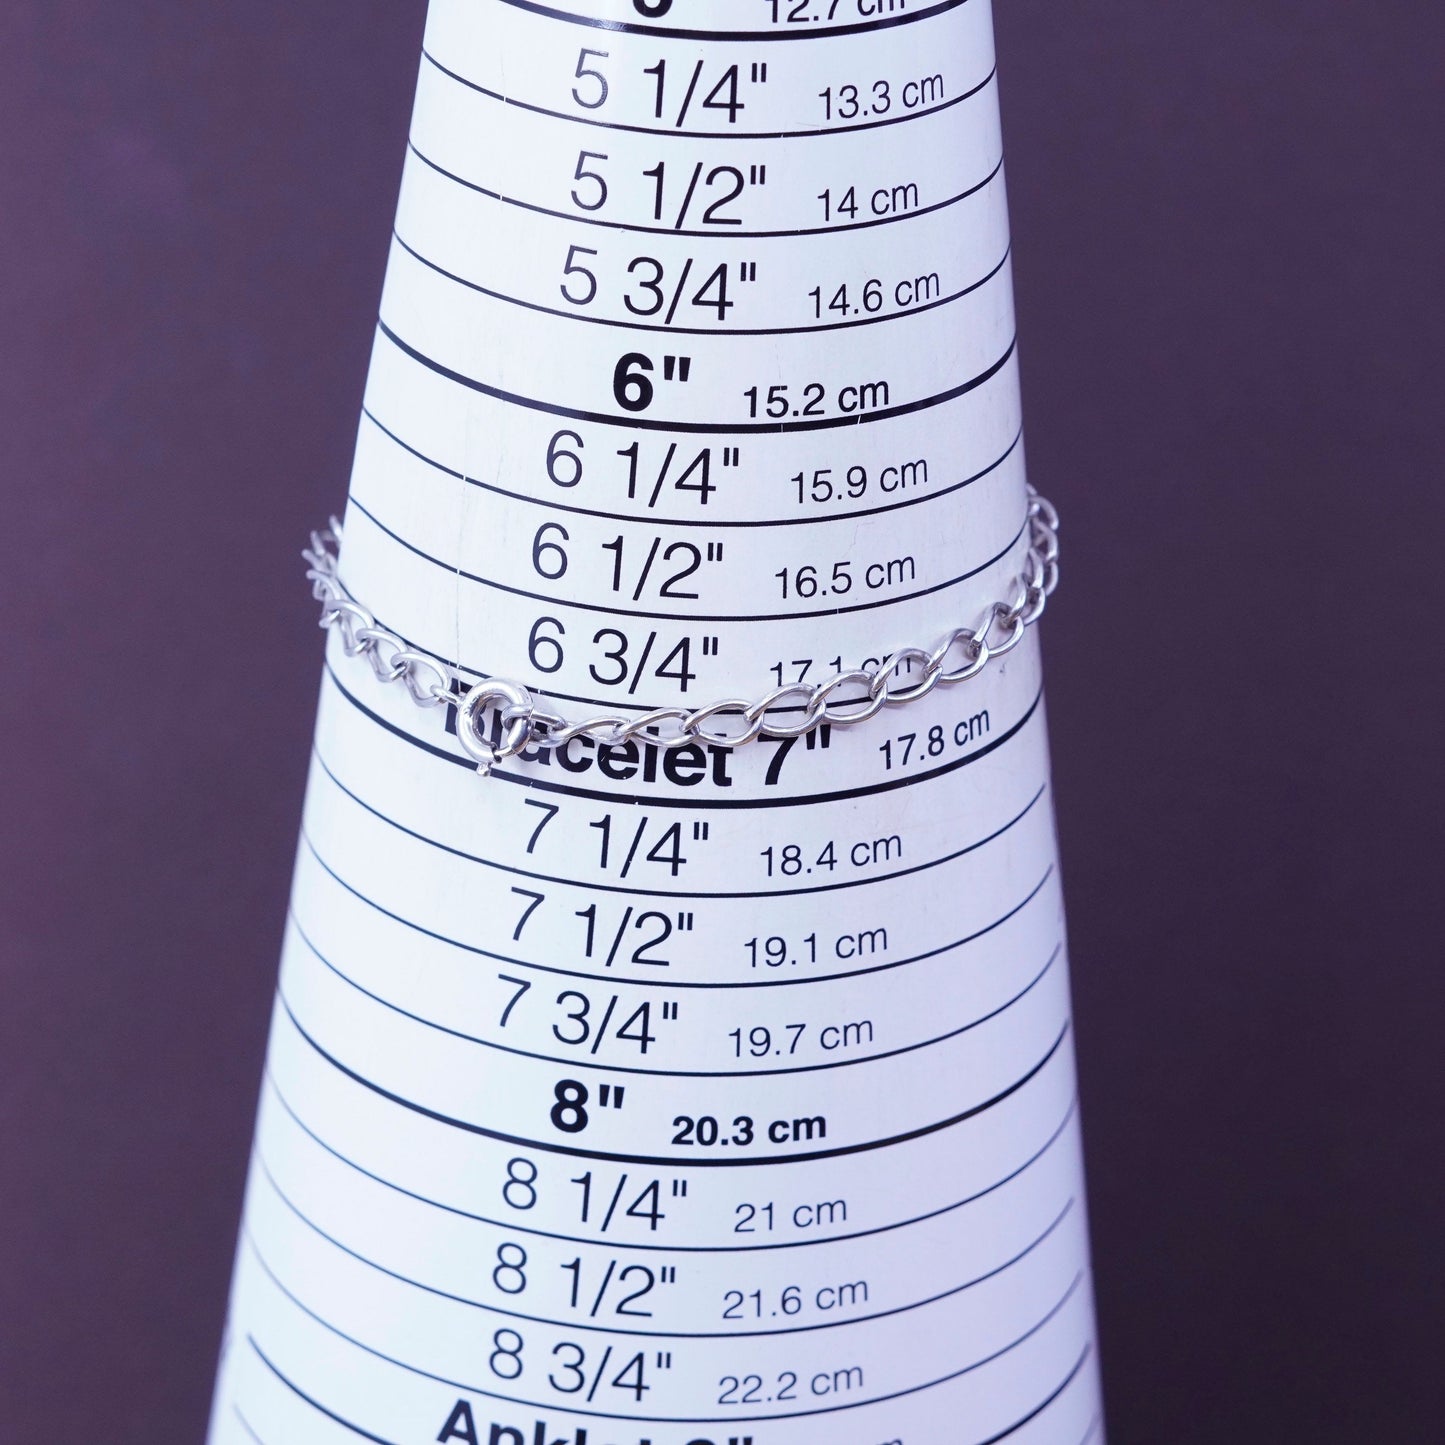 12.7 cm
5 1/4" 13.3 cm
5 1/2" 14 cm
5 3/4" 14.6 cm
6" 15.2 cm
6 1/4" 15.9 cm
6 1/2" 16.5 cm
6 3/4" 17.1 cm
Bracelet 7" 17.8 cm
7 1/4" 18.4 cm
7 1/2" 19.1 cm
7 3/4" 19.7 cm
8" 20.3 cm
8 1/4" 21 cm
8 1/2" 21.6 cm
8 3/4" 22.2 cm
Anklet 9"